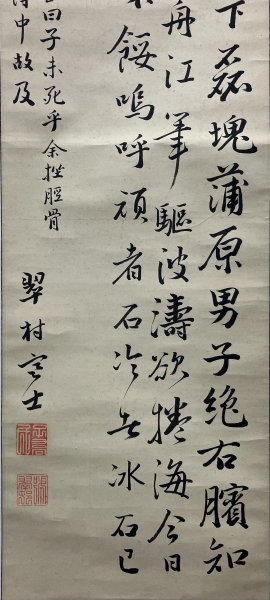 下磊塊蒲原男子絶右臏知
舟江筆驅波濤欲捲海今日
餒嗚呼頑者石冷於冰石已
曰子未死乎余挫脛骨
中故及
翠村寒士